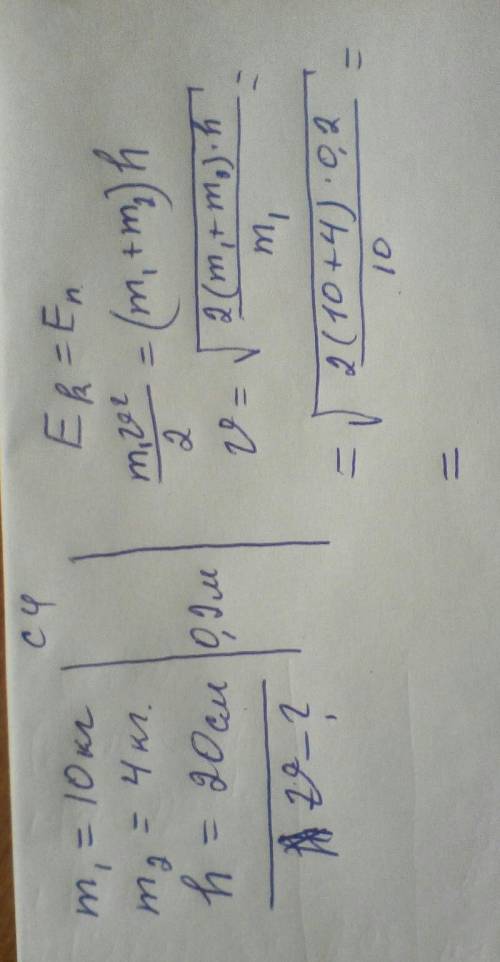 СИ
m₁ = 10 кг
m₂ = 4 кг.
h = 20 см | 0,2 м
v – ?
Eк = Eп
m₁v²/2 = (m₁ + m₂) h
v = √(2(m₁ + m₂)·h / m₁) =
= √(2(10 + 4)·0,2 / 10) =
=